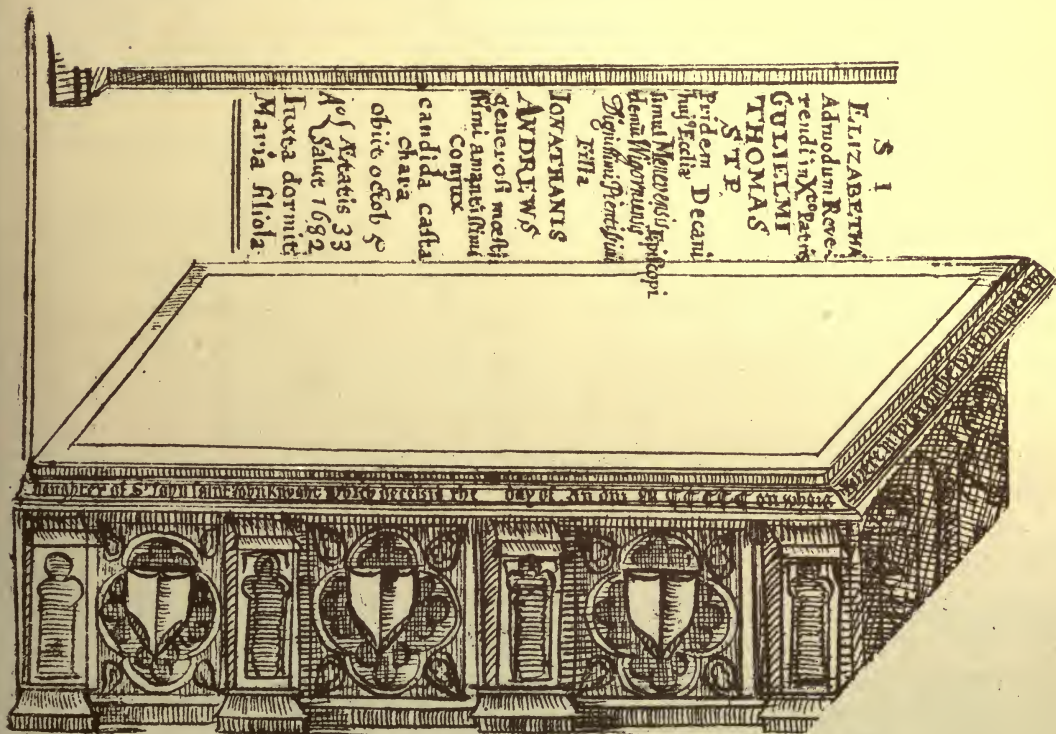 S I
ELIZABETHÆ
Admodum Reve-
rendi in Xto Patris
GULIELMI
THOMAS
STP
Pridem Decani
huj9 Eccliæ
simul Menevensis Episcopi
demū Wigorniensis
Dignissimi Pientissimi
Filia
IONATHANIS
ANDREWS
generosi mœsti
ssimi amantissimi
Conjux
candida casta
chara
obiit octob 5o
Ao { Ætatis 33
Salut 1682
Iuxta dormit
Maria filiola
daughter of Sr John saint John knyght which decessid the day of An dni M CCCCC on whose